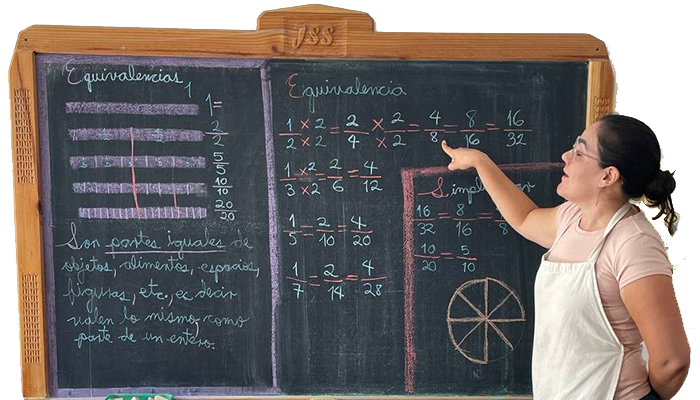 JSS
Equivalencias
1
1=
2/2
5/5
10/10
20/20
Son partes iguales de
objetos, alimentos, espacios,
figuras, etc, es decir
valen lo mismo, como
parte de un entero.
Equivalencia
1/2 × 2/× 2 = 2/4 × 2/× 2 = 4/8 = 8/16 = 16/32
1/3 × 2/× 2 = 2/6 = 4/12
1/5 = 2/10 = 4/20
1/7 = 2/14 = 4/28
16/32 = 8/16 = /8
10/20 = 5/10